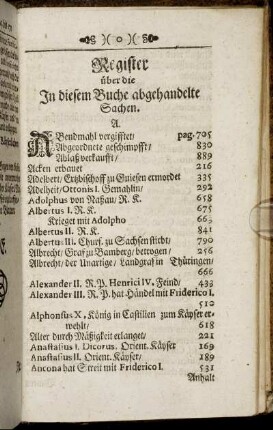 )( o )(
Register
über die
In diesem Buche abgehandelte
Sachen.
A.
ABendmahl vergifftet/ pag. 705
Abgeordnete geschimpfft/ 830
Ablaß verkaufft/ 889
Acken erbauet 216
Adelbert/ Ertzbischoff zu Gniesen ermordet 335
Adelheit/ Ottonis I. Gemahlin/ 292
Adolphus von Naßau/ R. K. 658
Albertus I. R. K. 675
Krieget mit Adolpho 663
Albertus II. R. K. 841
Albertus III. Churf. zu Sachsen stirbt/ 790
Albrecht/ Graf zu Bamberg/ betrogen/ 256
Albrecht/ der Unartige/ Landgraf in Thüringen/
666
Alexander II. R. P. Henrici IV. Feind/ 433
Alexander III. R. P. hat Händel mit Friderico I.
510
Alphonsus X, König in Castilien zum Käyser er-
wehlt/ 618
Alter durch Mäßigkeit erlanget/ 221
Anastasius I. Dicorus. Orient. Käyser 169
Anastasius II. Orient. Käyser/ 189
Ancona hat Streit mit Friderico I. 531
Anhalt